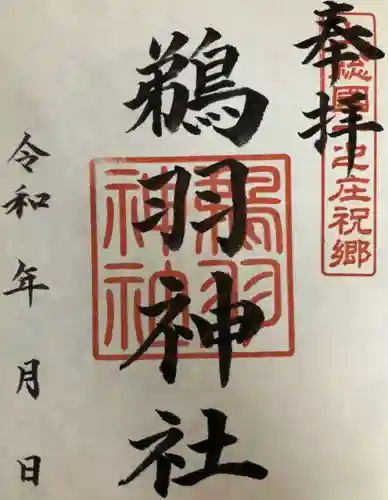 奉拝
総國之庄祝郷
鵜羽神社
鵜羽
神社
令和 年 月 日